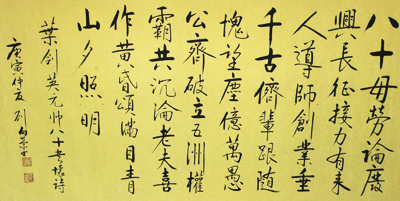 八十毋勞論廢
興長征接力有来
人導師創業垂
千古儕輩跟随
愧望塵億萬愚
公齊破立五洲權
霸共沉淪老夫喜
作黄昏頌滿目青
山夕照明
葉剑英元帅八十書懷詩
庚寅仲夏刘